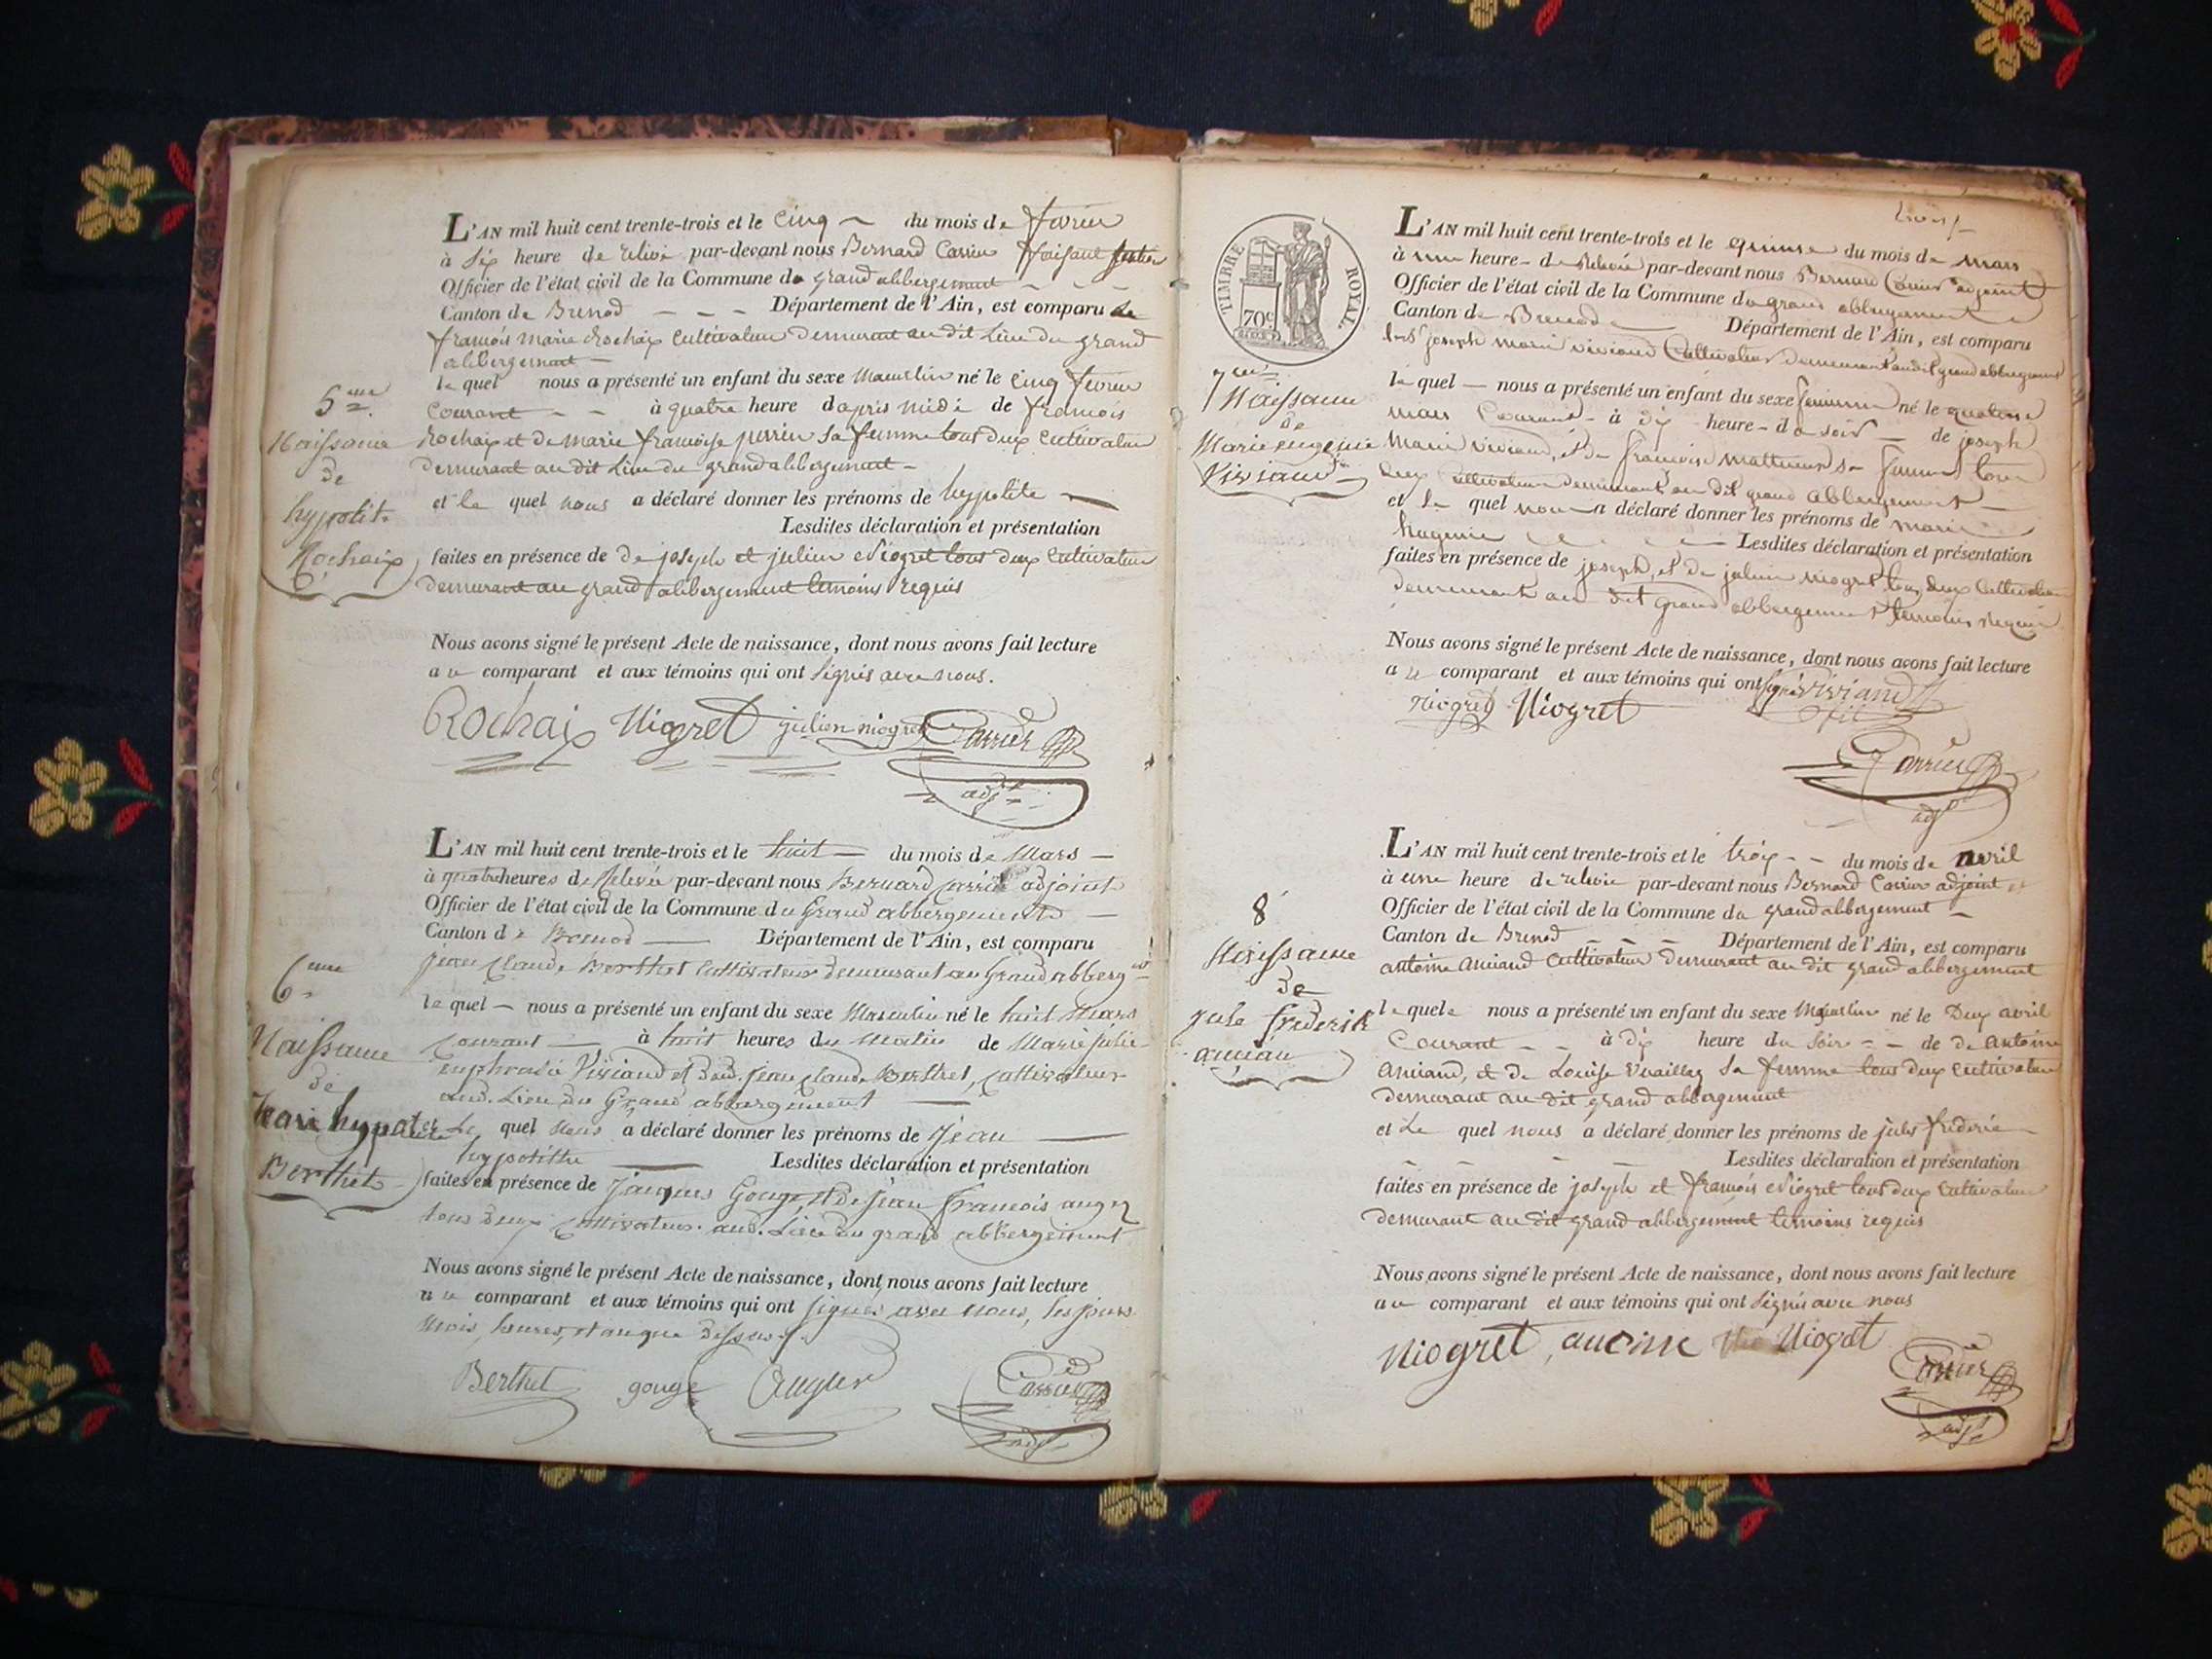 L'AN mil huit cent trente-trois et le cinq du mois de fevrier
à Six heure de relevé par-devant nous Bernard Carrier faisant
Officier de l'état civil de la Commune du grand abbergement
Canton de Brenod Département de l'Ain, est comparu Le
françois marie Rochaix cultivateur demurant au dit Lieu du grand
abbergement
le quel nous a présenté un enfant du sexe Masculin né le cinq fevrier
courant à quatre heure daprès midi de francois
Rochaix et de marie francoise perrin Sa femme tous deux cultivateur
demurant au dit Lieu du grand abbergement
et le quel nous a déclaré donner les prénoms de hypolite
Lesdites déclaration et présentation
faites en présence de de joseph et julien Niogret tous deux cultivateur
demurant au grand abbergement temoins requis
5me
Naissance
de
hypolite
Rochaix
Nous avons signé le présent Acte de naissance, dont nous avons fait lecture
au comparant et aux témoins qui ont Signés avec nous.
Rochaix Niogret julien niogret Carrier
adjt
L'AN mil huit cent trente-trois et le huit du mois de Mars
à quatre heures de relevée par-devant nous Bernard Carrier adjoint
Officier de l'état civil de la Commune du Grand abbergement
Canton de Brenod Département de l'Ain, est comparu
jean Claude Berthet Cultivateur demeurant au Grand abbergmt
le quel nous a présenté un enfant du sexe Masculin né le huit Mars
courant à huit heures du Matin de Marie julie
euphrosie Viviand et dud. jean Claude Berthet, Cultivateur
aud. Lieu du Grand abbergement
et Le quel Nous a déclaré donner les prénoms de jean
hypolithe Lesdites déclaration et présentation
faites en présence de jacques Gouge, et de jean francois auger
tous deux Cultivateurs aud. Lieu du grand abbergement
6me
Naissance
de
Berthet
Nous avons signé le présent Acte de naissance, dont nous avons fait lecture
au comparant et aux témoins qui ont signés avec nous, les jour
mois, heures, et an que dessus
Berthet gouge Auger Carrier
adjt
TIMBRE ROYAL.
70c
L'AN mil huit cent trente-trois et le quinse du mois de mars
à une heure de Relevée par-devant nous Bernard Carrier adjoint
Officier de l'état civil de la Commune du grand abbergement
Canton de Brenod Département de l'Ain, est comparu
joseph marie viviand Cultivateur demeurant audit grand abbergement
le quel nous a présenté un enfant du sexe feminin né le quatorse
mars Courant à dix heure du soir de joseph
Marie viviand, et de francoise Mathieu sa femme tous
deux cultivateur demeurant au dit grand abbergement
et Le quel nous a déclaré donner les prénoms de marie
hugenie Lesdites déclaration et présentation
faites en présence de joseph, et de julien niogret tous deux cultivateur
demeurant au dit grand abbergement temoins requis
7me
Naissance
de
Marie eugenie
Viviand
Nous avons signé le présent Acte de naissance, dont nous avons fait lecture
au comparant et aux témoins qui ont signé Viviand
niogret Niogret
Carrier
adjt
L'AN mil huit cent trente-trois et le trois du mois de avril
à une heure de relevée par-devant nous Bernard Carrier adjoint et
Officier de l'état civil de la Commune du grand abbergement
Canton de Brenod Département de l'Ain, est comparu
antoine amiand cultivateur demurant au dit grand abbergement
le quele nous a présenté un enfant du sexe Masculin né le Deux avril
Courant à dix heure du soir de de antoine
amiand, et de Louise Vuaillaz Sa femme tous deux cultivateur
demurant au dit grand abbergement
et Le quel nous a déclaré donner les prénoms de jules frederic
Lesdites déclaration et présentation
faites en présence de joseph et françois Niogret tous deux cultivateur
demurant au dit grand abbergement temoins requis
8
Naissance
de
jule frederik
Nous avons signé le présent Acte de naissance, dont nous avons fait lecture
au comparant et aux témoins qui ont Signés avec nous
Niogret Niogret
Carrier
adjt